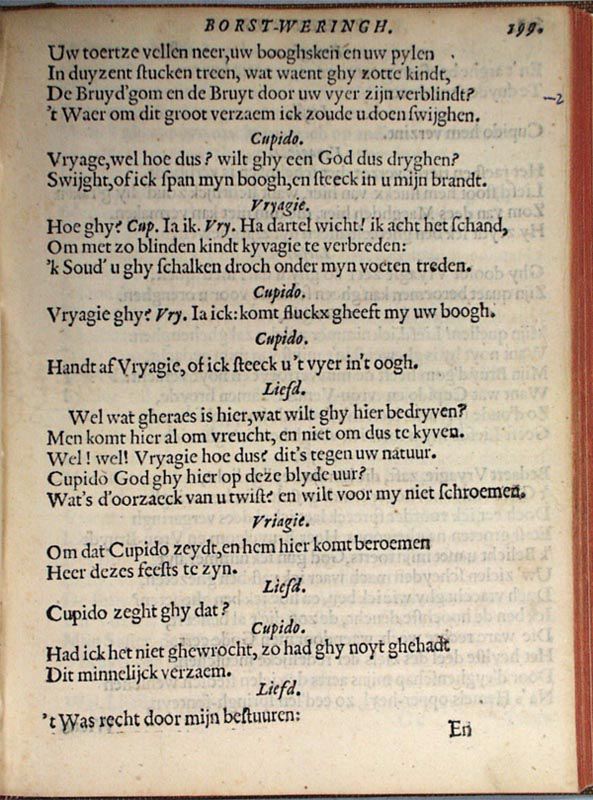 BORST-WERINGH. 199.
Uw toertze vellen neer, uw booghsken en uw pylen
In duyzent stucken treen, wat waent ghy zotte kindt,
De Bruyd'gom en de Bruyt door uw vyer zijn verblindt?
't Waer om dit groot verzaem ick zoude u doen swijghen.
Cupido.
Vryage, wel hoe dus? wilt ghy een God dus dryghen?
Swijght, of ick span myn boogh, en steeck in u mijn brandt.
Vryagie.
Hoe ghy? Cup. Ia ik. Vry. Ha dartel wicht! ik acht het schand,
Om met zo blinden kindt kyvagie te verbreden:
'k Soud' u ghy schalken droch onder myn voeten treden.
Cupido.
Vryagie ghy? Vry. Ia ick: komt fluckx gheeft my uw boogh.
Cupido.
Handt af Vryagie, of ick steeck u 't vyer in't oogh.
Liefd.
Wel wat gheraes is hier, wat wilt ghy hier bedryven?
Men komt hier al om vreucht, en niet om dus te kyven.
Wel! wel! Vryagie hoe dus? dit's tegen uw natuur.
Cupido God ghy hier op deze blyde uur?
Wat's d'oorzaeck van u twist? en wilt voor my niet schroemen.
Vriagie.
Om dat Cupido zeydt, en hem hier komt beroemen
Heer dezes feests te zyn.
Liefd.
Cupido zeght ghy dat?
Cupido.
Had ick het niet ghewrocht, zo had ghy noyt ghehadt
Dit minnelijck verzaem.
Liefd.
't Was recht door mijn bestuuren:
En